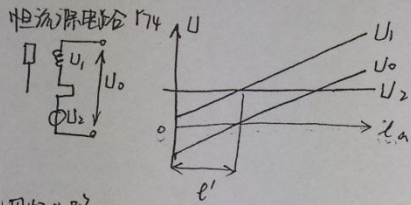 恒流源电路 P74
U₁
U₀
U₂
U
U₁
U₀
U₂
0
ℓ'